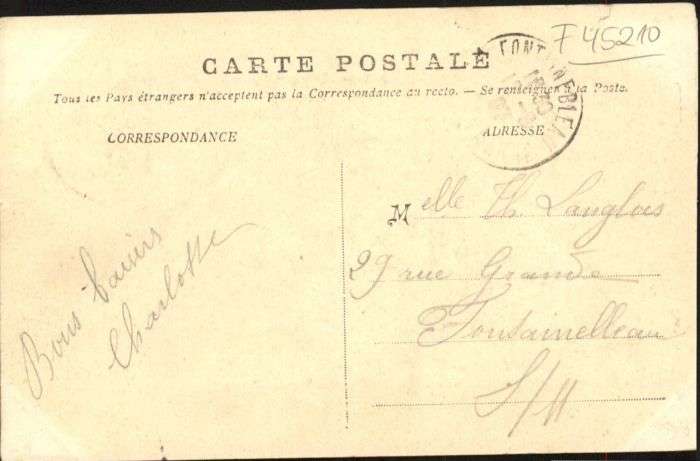 F 45210
CARTE POSTALE
Tous les Pays étrangers n'acceptent pas la Correspondance au recto. — Se renseigner à la Poste.
CORRESPONDANCE
ADRESSE
FONTAINEBLEAU
Bons baisers
Charlotte
Melle Th. Langlois
29 rue Grande
Fontainebleau
S/M